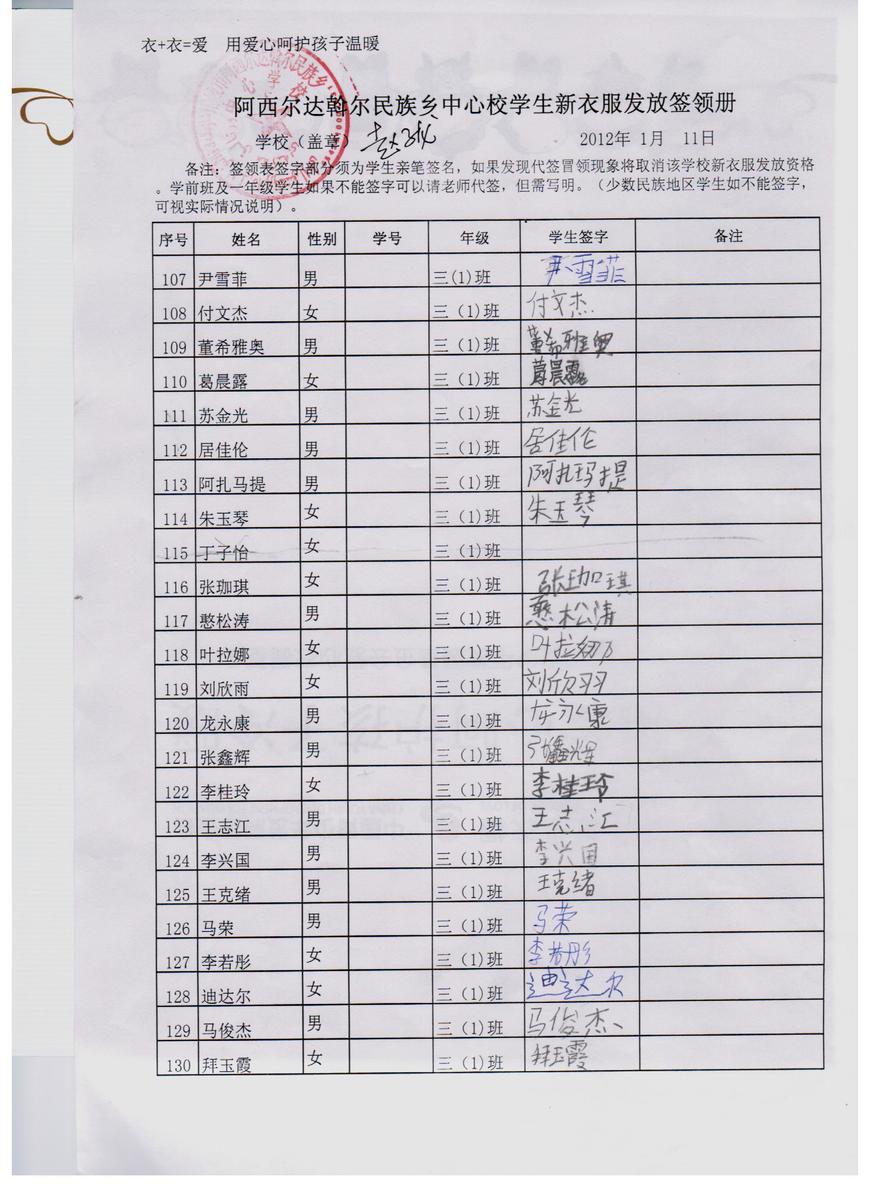 衣+衣=爱　用爱心呵护孩子温暖
阿西尔达斡尔民族乡中心校学生新衣服发放签领册
学校（盖章） 2012年 1月 11日
备注：签领表签字部分须为学生亲笔签名，如果发现代签冒领现象将取消该学校新衣服发放资格
。学前班及一年级学生如果不能签字可以请老师代签，但需写明。（少数民族地区学生如不能签字，
可视实际情况说明）。
序号 姓名 性别 学号 年级 学生签字 备注
107 尹雪菲 男 三(1)班 尹雪菲
108 付文杰 女 三（1)班 付文杰
109 董希雅奥 男 三（1)班 董希雅奥
110 葛晨露 女 三（1)班 葛晨露
111 苏金光 男 三（1)班 苏金光
112 居佳伦 男 三（1)班 居佳伦
113 阿扎马提 男 三（1)班 阿扎玛提
114 朱玉琴 女 三（1)班 朱玉琴
115 丁子怡 女 三（1)班
116 张珈琪 女 三（1)班 张珈琪
117 憨松涛 男 三（1)班 憨松涛
118 叶拉娜 女 三（1)班 叶拉娜
119 刘欣雨 女 三（1)班 刘欣羽
120 龙永康 男 三（1)班 龙永康
121 张鑫辉 男 三（1)班 张鑫辉
122 李桂玲 女 三（1)班 李桂玲
123 王志江 男 三（1)班 王志江
124 李兴国 男 三（1)班 李兴国
125 王克绪 男 三（1)班 王克绪
126 马荣 男 三（1)班 马荣
127 李若彤 女 三（1)班 李若彤
128 迪达尔 女 三（1)班 迪达尔
129 马俊杰 男 三（1)班 马俊杰
130 拜玉霞 女 三（1)班 拜玉霞